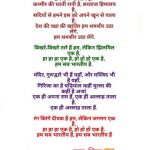 कश्मीर की धरती रानी है, सरताज हिमालय है,
सदियों से हमने इस को अपने खून से पाला है
देश की रक्षा की खातिर
हम शमशीर उठा लेंगे,
हम शमशीर उठा लेंगे।
बिखरे-बिखरे तारे हैं हम, लेकिन झिलमिल एक है,
हा हा हा एक है, हो हो हो एक है,
हम सब भारतीय है।
मंदिर, गुरूद्वारे भी हैं यहाँ, और मस्जिद भी है यहाँ,
गिरिजा का है घड़ियाल कहीं मुल्ला की कहीं है अजां
एक ही अपना राम है, एक ही अल्लाह ताला है,
एक ही अल्लाह ताला है।
रंग बिरंगे दीपक हैं हम, लेकिन जगमग एक है,
हा हा हा एक है, हो हो हो एक है,
हम सब भारतीय है।